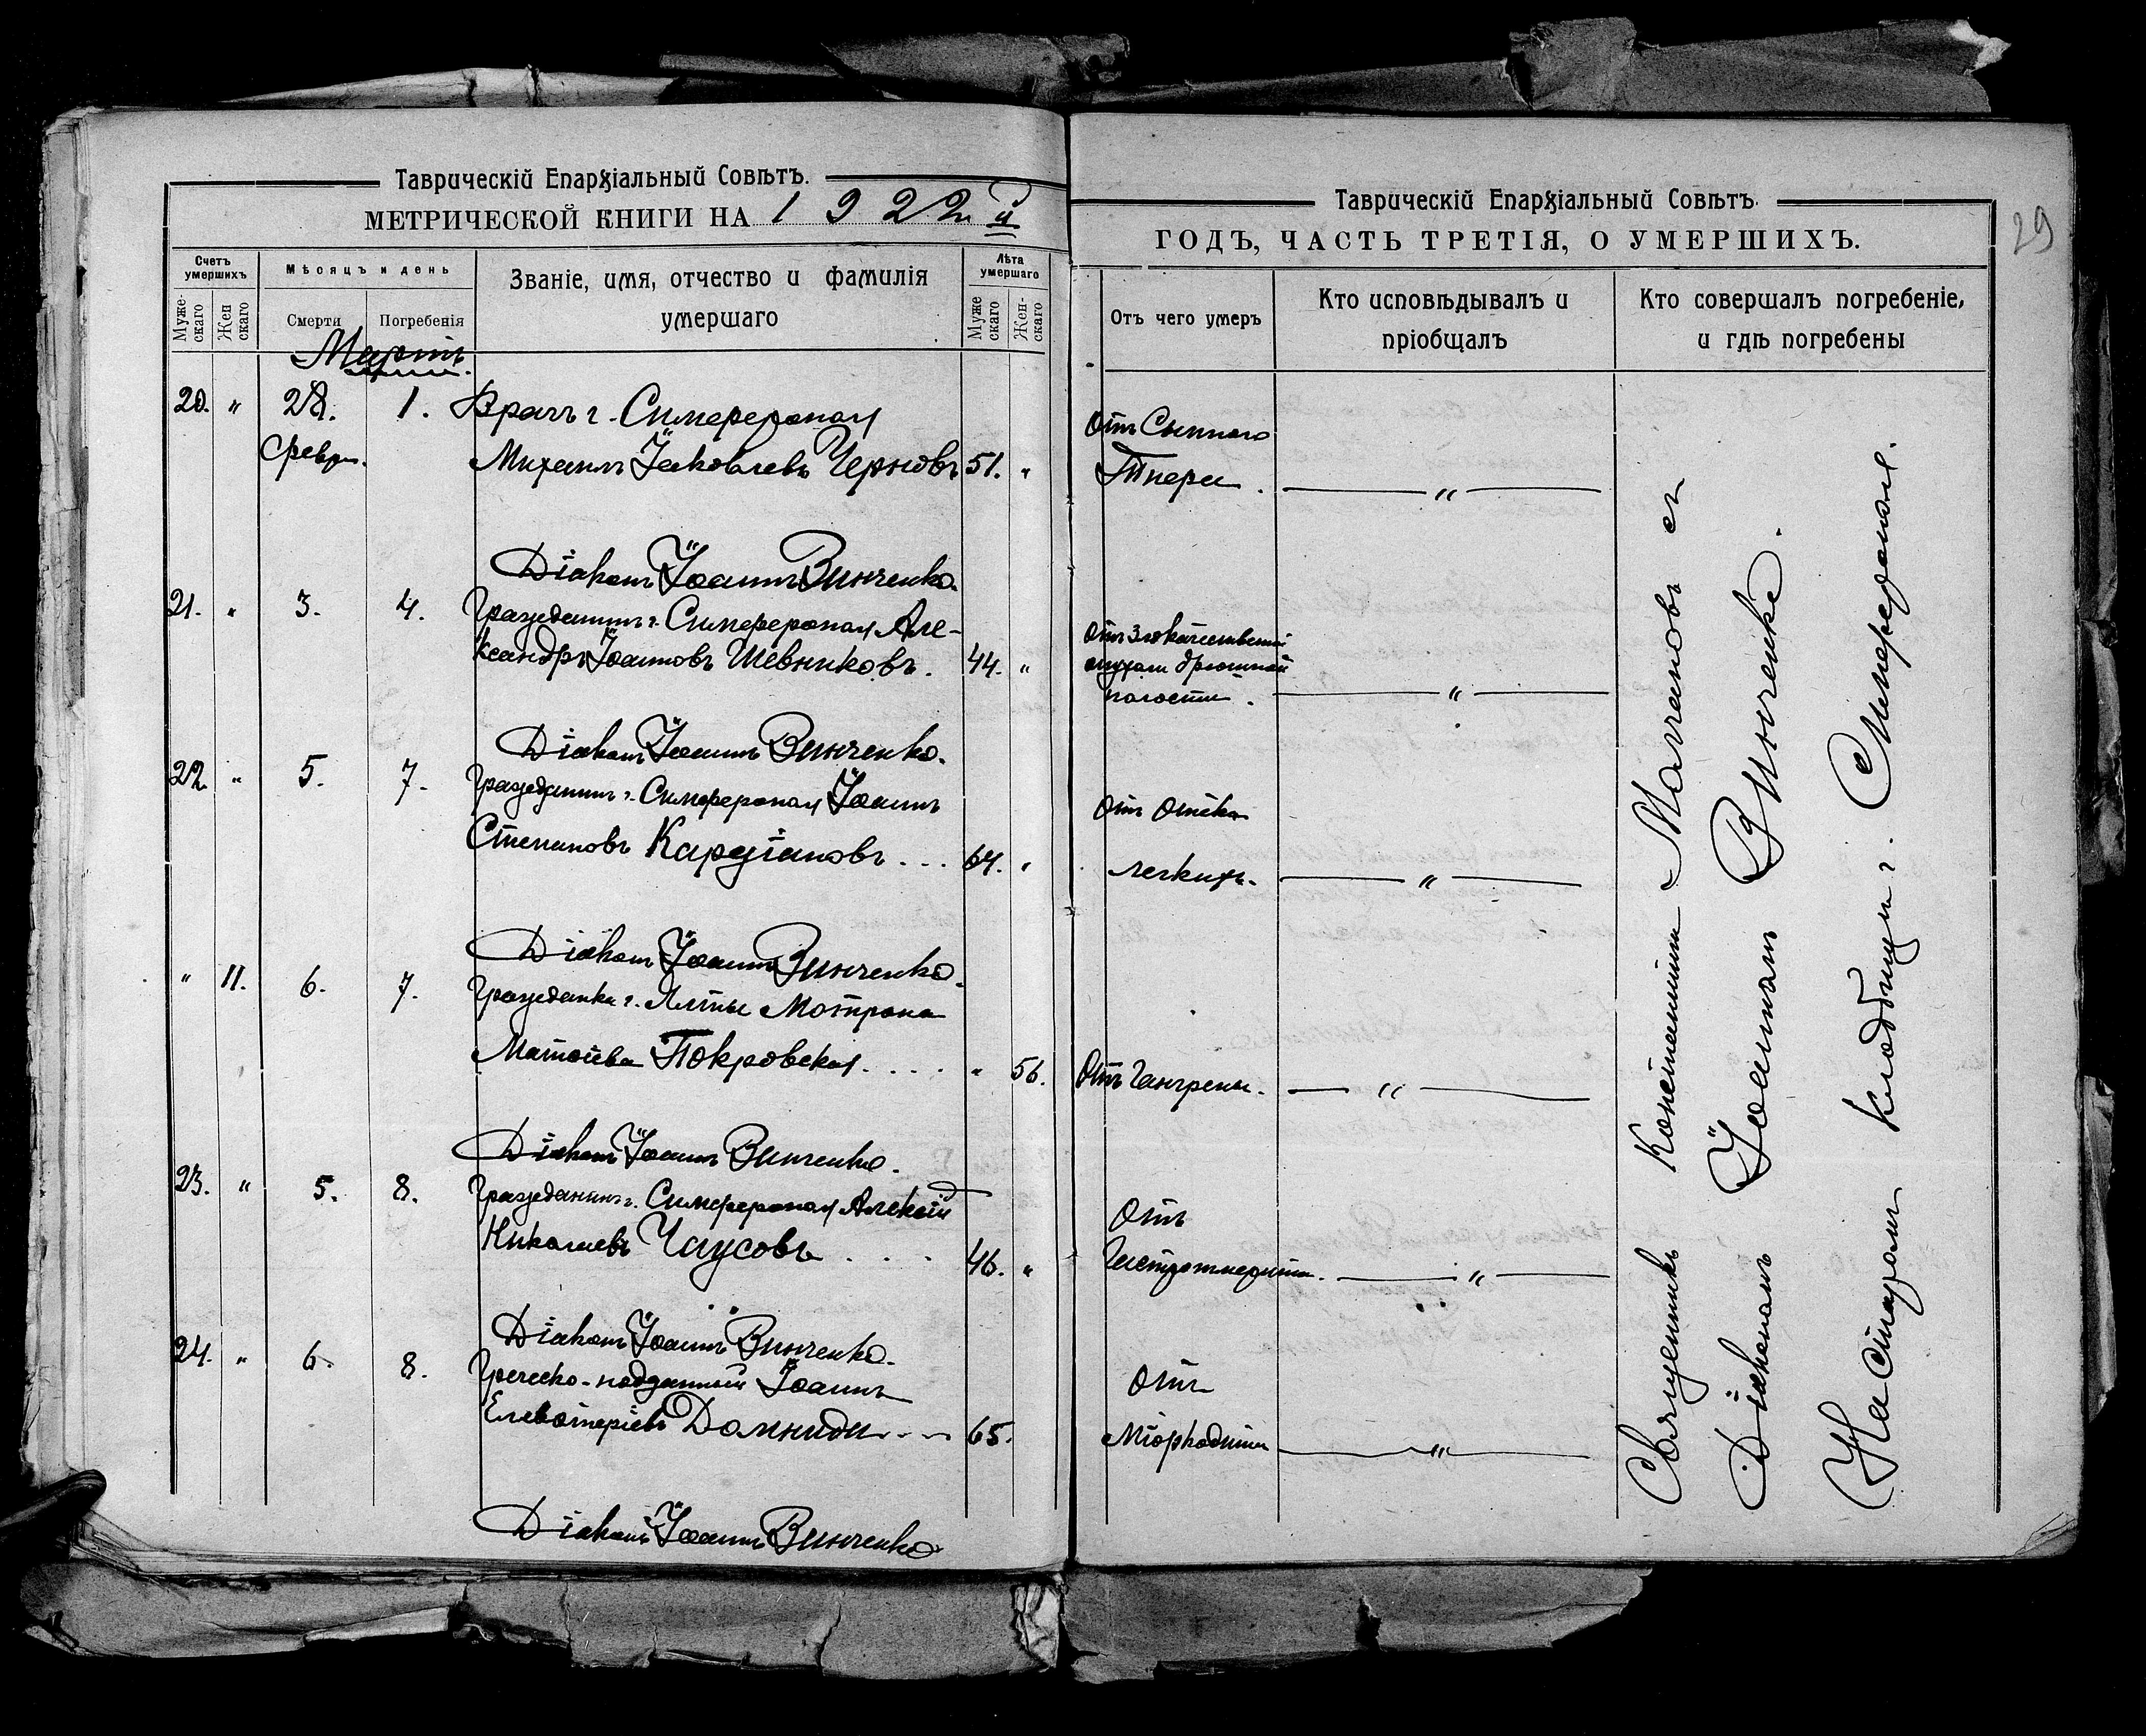 Таврическій Епархіальный Совѣтъ.
МЕТРИЧЕСКОЙ КНИГИ НА 1922 й
Счетъ умершихъ
Мѣсяцъ и день
Званіе, имя, отчество и фамилія умершаго
Лѣта умершаго
Муже-скаго
Жен скаго
Смерти
Погребенія
Муже скаго
Жен-скаго
Мартъ.
20. " 28. 1. Врачъ г. Симферополя
Февр. Михаилъ Іаковлевъ Черновъ 51. "
Діаконъ Іоаннъ Винченко.
21. " 3. 4. Гражданинъ г. Симферополя Але-
ксандръ Іоанновъ Шевниковъ. 44. "
Діаконъ Іоаннъ Винченко.
22. " 5. 7. Гражданинъ г. Симферополя Іоаннъ
Степановъ 64. "
Діаконъ Іоаннъ Винченко.
" 11. 6. 7. Гражданка г. Ялты Мотрона
Покровская . . . . " 56.
Діаконъ Іоаннъ Винченко.
23. " 5. 8. Гражданинъ г. Симферополя Алексій
Николаевъ Чаусовъ . . . . 46. "
Діаконъ Іоаннъ Винченко.
24. " 6. 8. Греческо-подданный Іоаннъ
Елевѳеріевъ Домниди 65.
Діаконъ Іоаннъ Винченко
Таврическій Епархіальный Совѣтъ.
ГОДЪ, ЧАСТЬ ТРЕТІЯ, О УМЕРШИХЪ.
29
Отъ чего умеръ
Кто исповѣдывалъ и пріобщалъ
Кто совершалъ погребеніе, и гдѣ погребены
Отъ Сыпного
Тифа. — " —
Отъ злокачественной
опухоли брюшной
полости. — " —
Отъ отека
легкихъ. — " —
Отъ Гангрены. — " —
Отъ
— " —
Отъ
Міокардита — " —
Священникъ Константинъ съ
Діакономъ Іоанномъ Винченко.
На Старом кладбищѣ г. Симферополя.